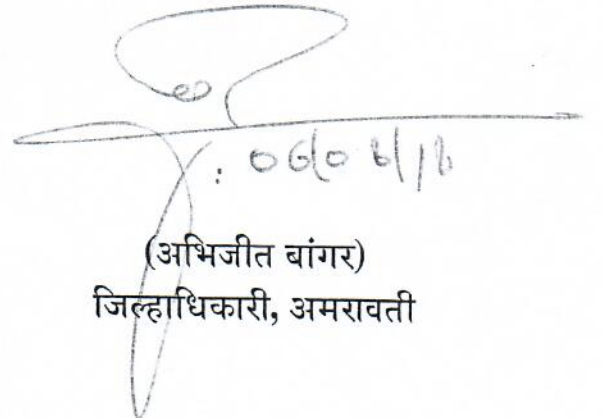 (अभिजीत बांगर)
जिल्हाधिकारी, अमरावती